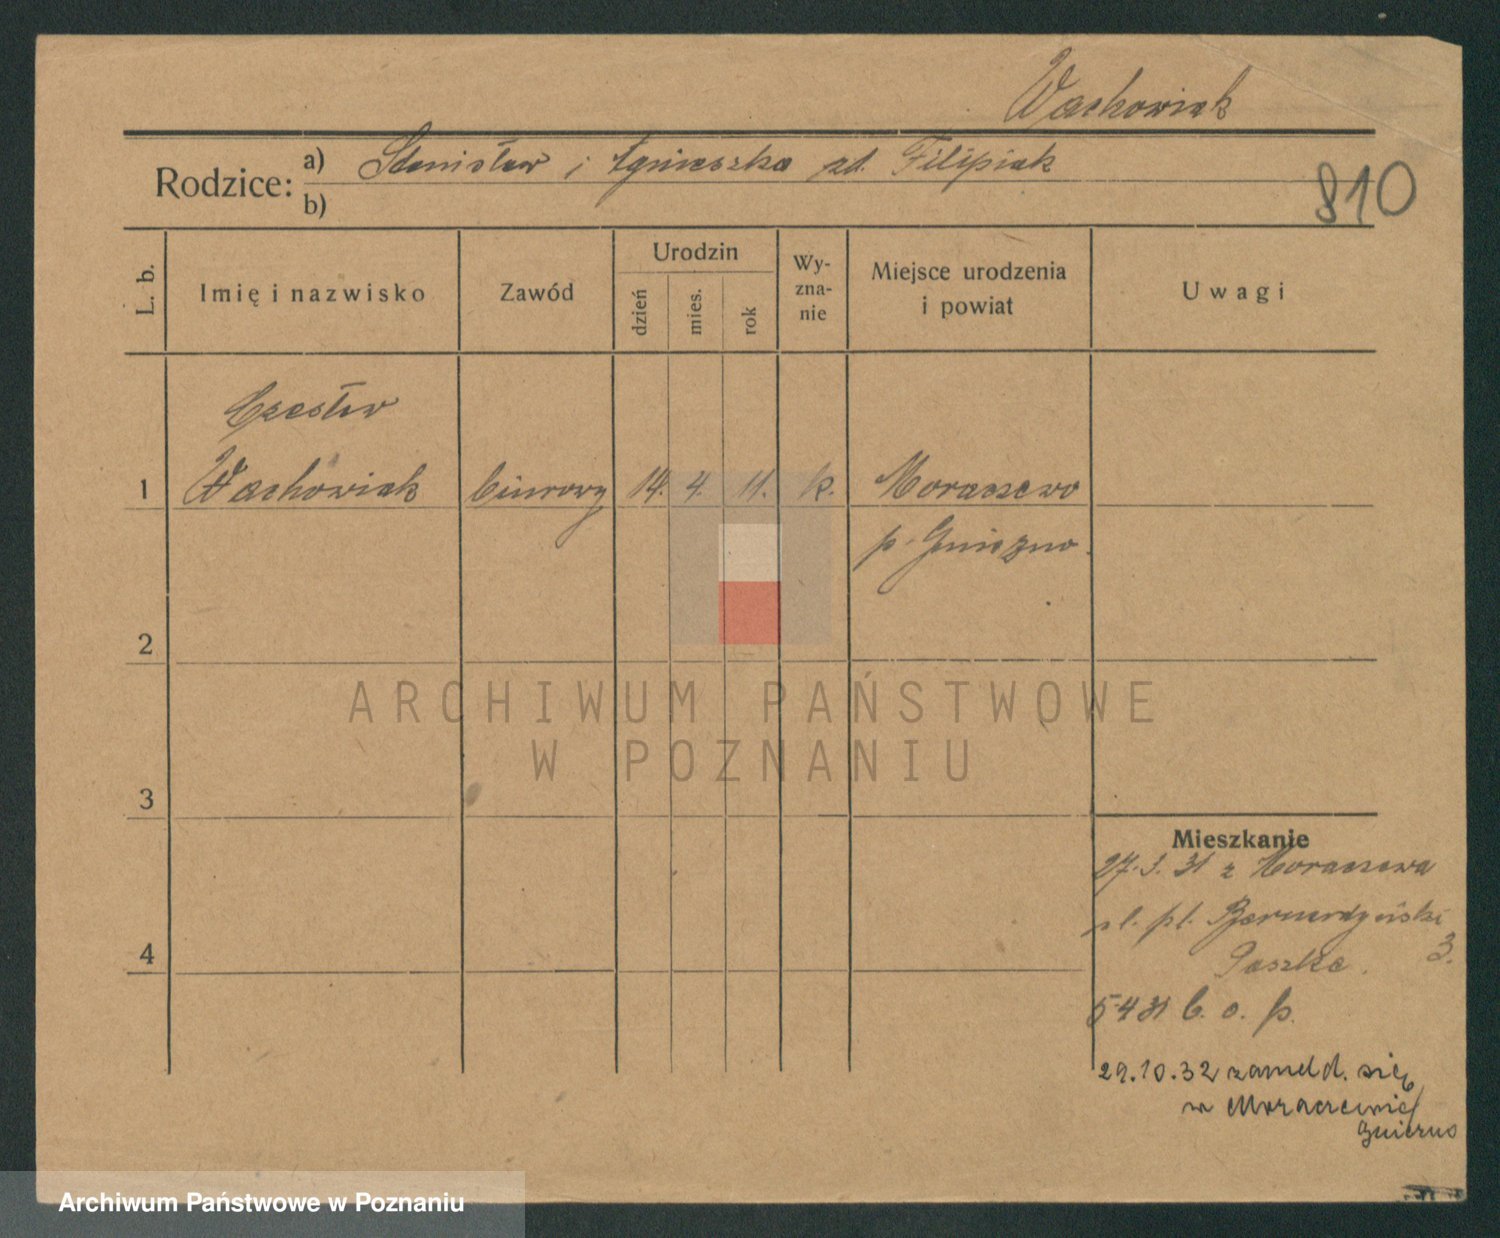 Wachowiak
Rodzice: a) Stanisław i Agnieszka zd. Filipiak
b)
810
L. b.
Imię i nazwisko
Zawód
Urodzin
dzień
mies.
rok
Wy-
zna-
nie
Miejsce urodzenia
i powiat
Uwagi
Czesław
1 Wachowiak biurowy 14. 4. 11. k. Moraczewo
p. Gniezno.
2
ARCHIWUM PAŃSTWOWE
W POZNANIU
3
Mieszkanie
27.3.31 z Moraczewa
pl. Bernardyński
3.
Paszke.
4
5 4 31 b. o. p.
29.10.32 zameld. się
w Moraczewie/
Gniezno
Archiwum Państwowe w Poznaniu